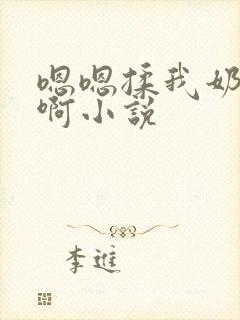 嗯嗯揉我奶
啊小説
李進